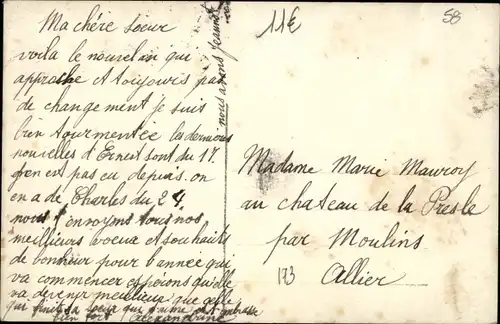 Ma chère soeur
voila le nouvel an qui
approche et toujours pas
de changement je suis
bien tourmentée les dernieres
nouvelles d'Ernest sont du 17.
j'en est pas eu depuis. on
en a de Charles du 24,
nous t'envoyons tous nos
meilleurs voeux et souhaits
de bonheur pour l'année qui
va commencer espérons qu'elle
va devenir meilleur que celle
qui finit ta soeur qui t'aime et t'embrasse
bien fort Alexandrine
nous avons
11€
58
Madame Marie Mauroy
au chateau de la Presle
par Moulins
173
Allier